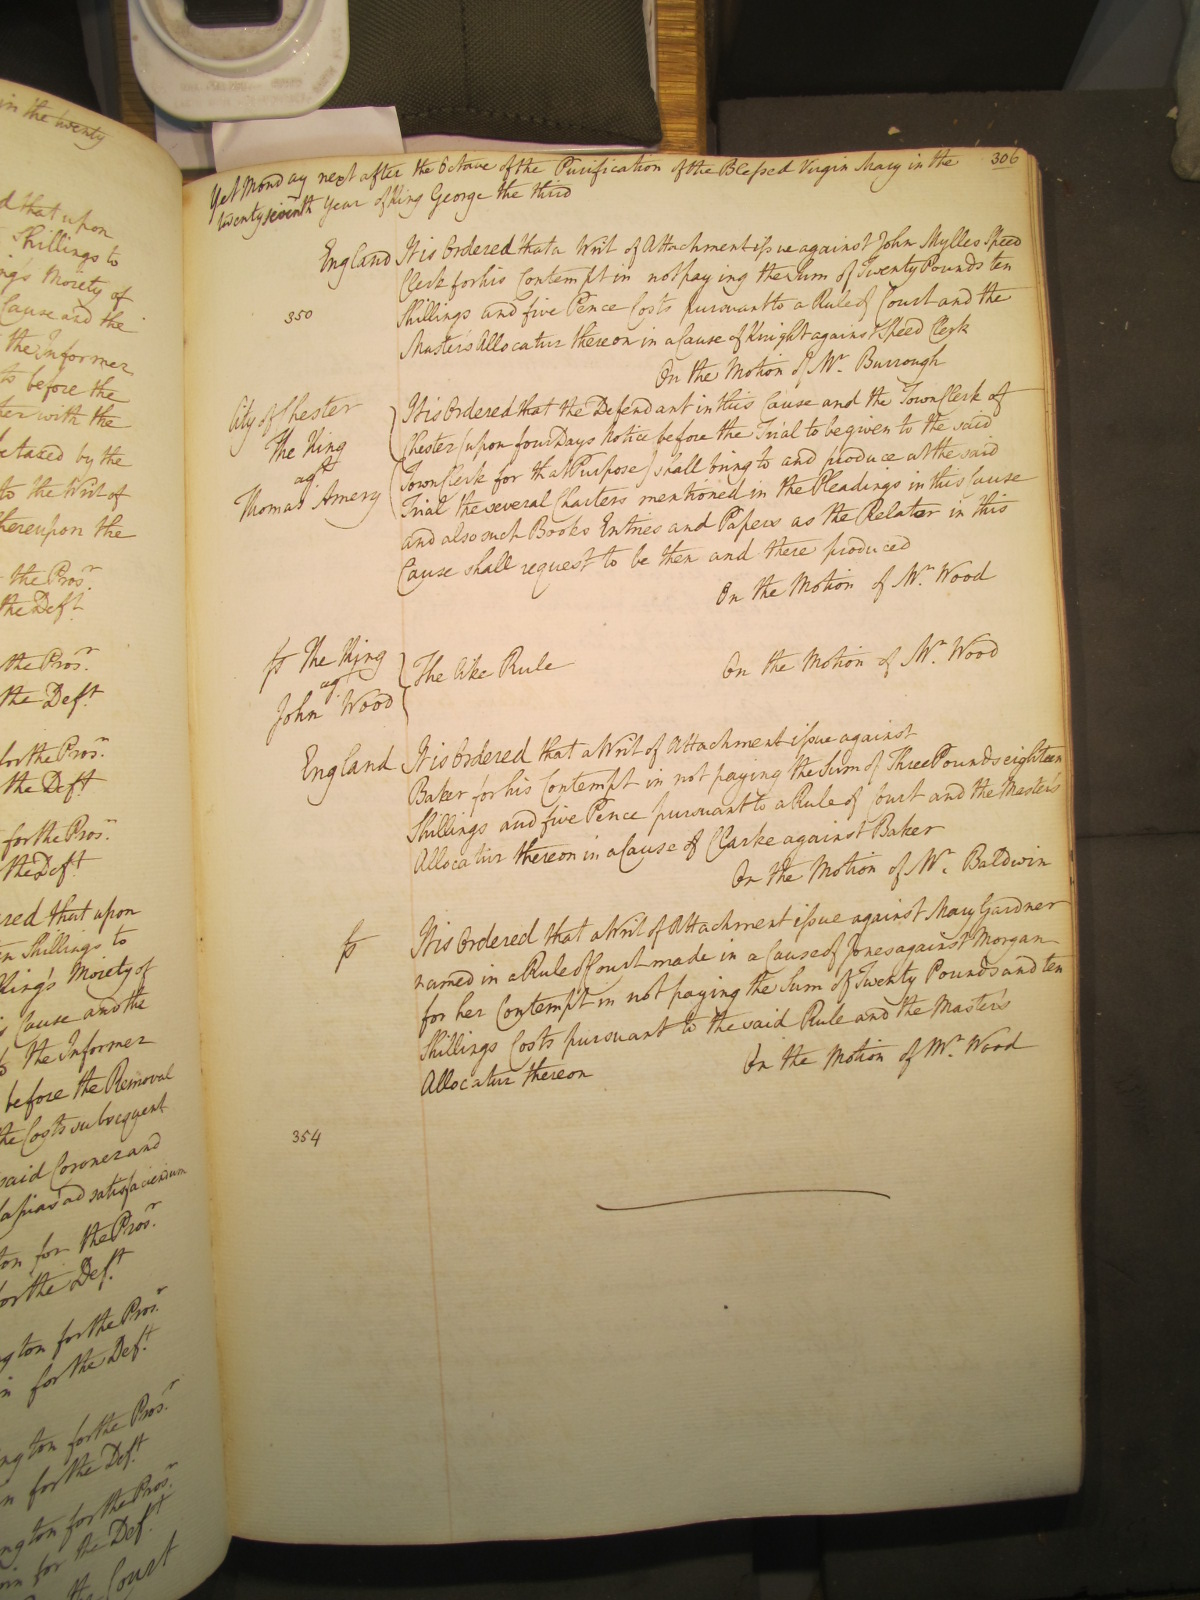 in the twenty
d that upon
Shillings to
ng's Moiety of
Cause and the
the Informer
to before the
ter with the
be taxed by the
to the Writ of
thereupon the
the Prosr.
the Deft.
the Prosr.
the Deft
for the Prosr.
the Deft
for the Prosr.
the Deft
red that upon
n Shillings to
King's Moiety of
Cause and the
the Informer
before the Removal
the Costs subsequent
said Coroner and
Capias ad satisfaciendum
ton for the Prosr.
for the Deft
gton for the Prosr.
n for the Deft.
ngton for the Prosr.
n for the Deft
ngton for the Prosr.
oin for the Deft.
the Court
306
Yet Monday next after the Octave of the Purification of the Blessed Virgin Mary in the
twenty seventh Year of King George the third
England It is Ordered that a Writ of Attachment issue against John Mylles Speed
Clerk for his Contempt in not paying the Sum of Twenty Pounds ten
350 Shillings and five Pence Costs pursuant to a Rule of Court and the
Master's Allocatur thereon in a Cause of Knight against Speed Clerk
On the Motion of Mr. Burrough
City of Chester It is Ordered that the Defendant in this Cause and the Town Clerk of
The King Chester (upon four Days Notice before the Trial to be given to the said
agt. Town Clerk for that Purpose) shall bring to and produce at the said
Thomas Amery Trial the several Charters mentioned in the Pleadings in this Cause
and also such Books Entries and Papers as the Relator in this
Cause shall request to be then and there produced
On the Motion of Mr. Wood
The King
agt. The like Rule On the Motion of Mr. Wood
John Wood
England It is Ordered that a Writ of Attachment issue against
Baker for his Contempt in not paying the Sum of Three Pounds eighteen
Shillings and five Pence pursuant to a Rule of Court and the Master's
Allocatur thereon in a Cause of Clarke against Baker
On the Motion of Mr. Baldwin
It is Ordered that a Writ of Attachment issue against Mary Gardner
named in a Rule of Court made in a Cause of Jones against Morgan
for her Contempt in not paying the Sum of Twenty Pounds and ten
Shillings Costs pursuant to the said Rule and the Master's
Allocatur thereon On the Motion of Mr. Wood
354